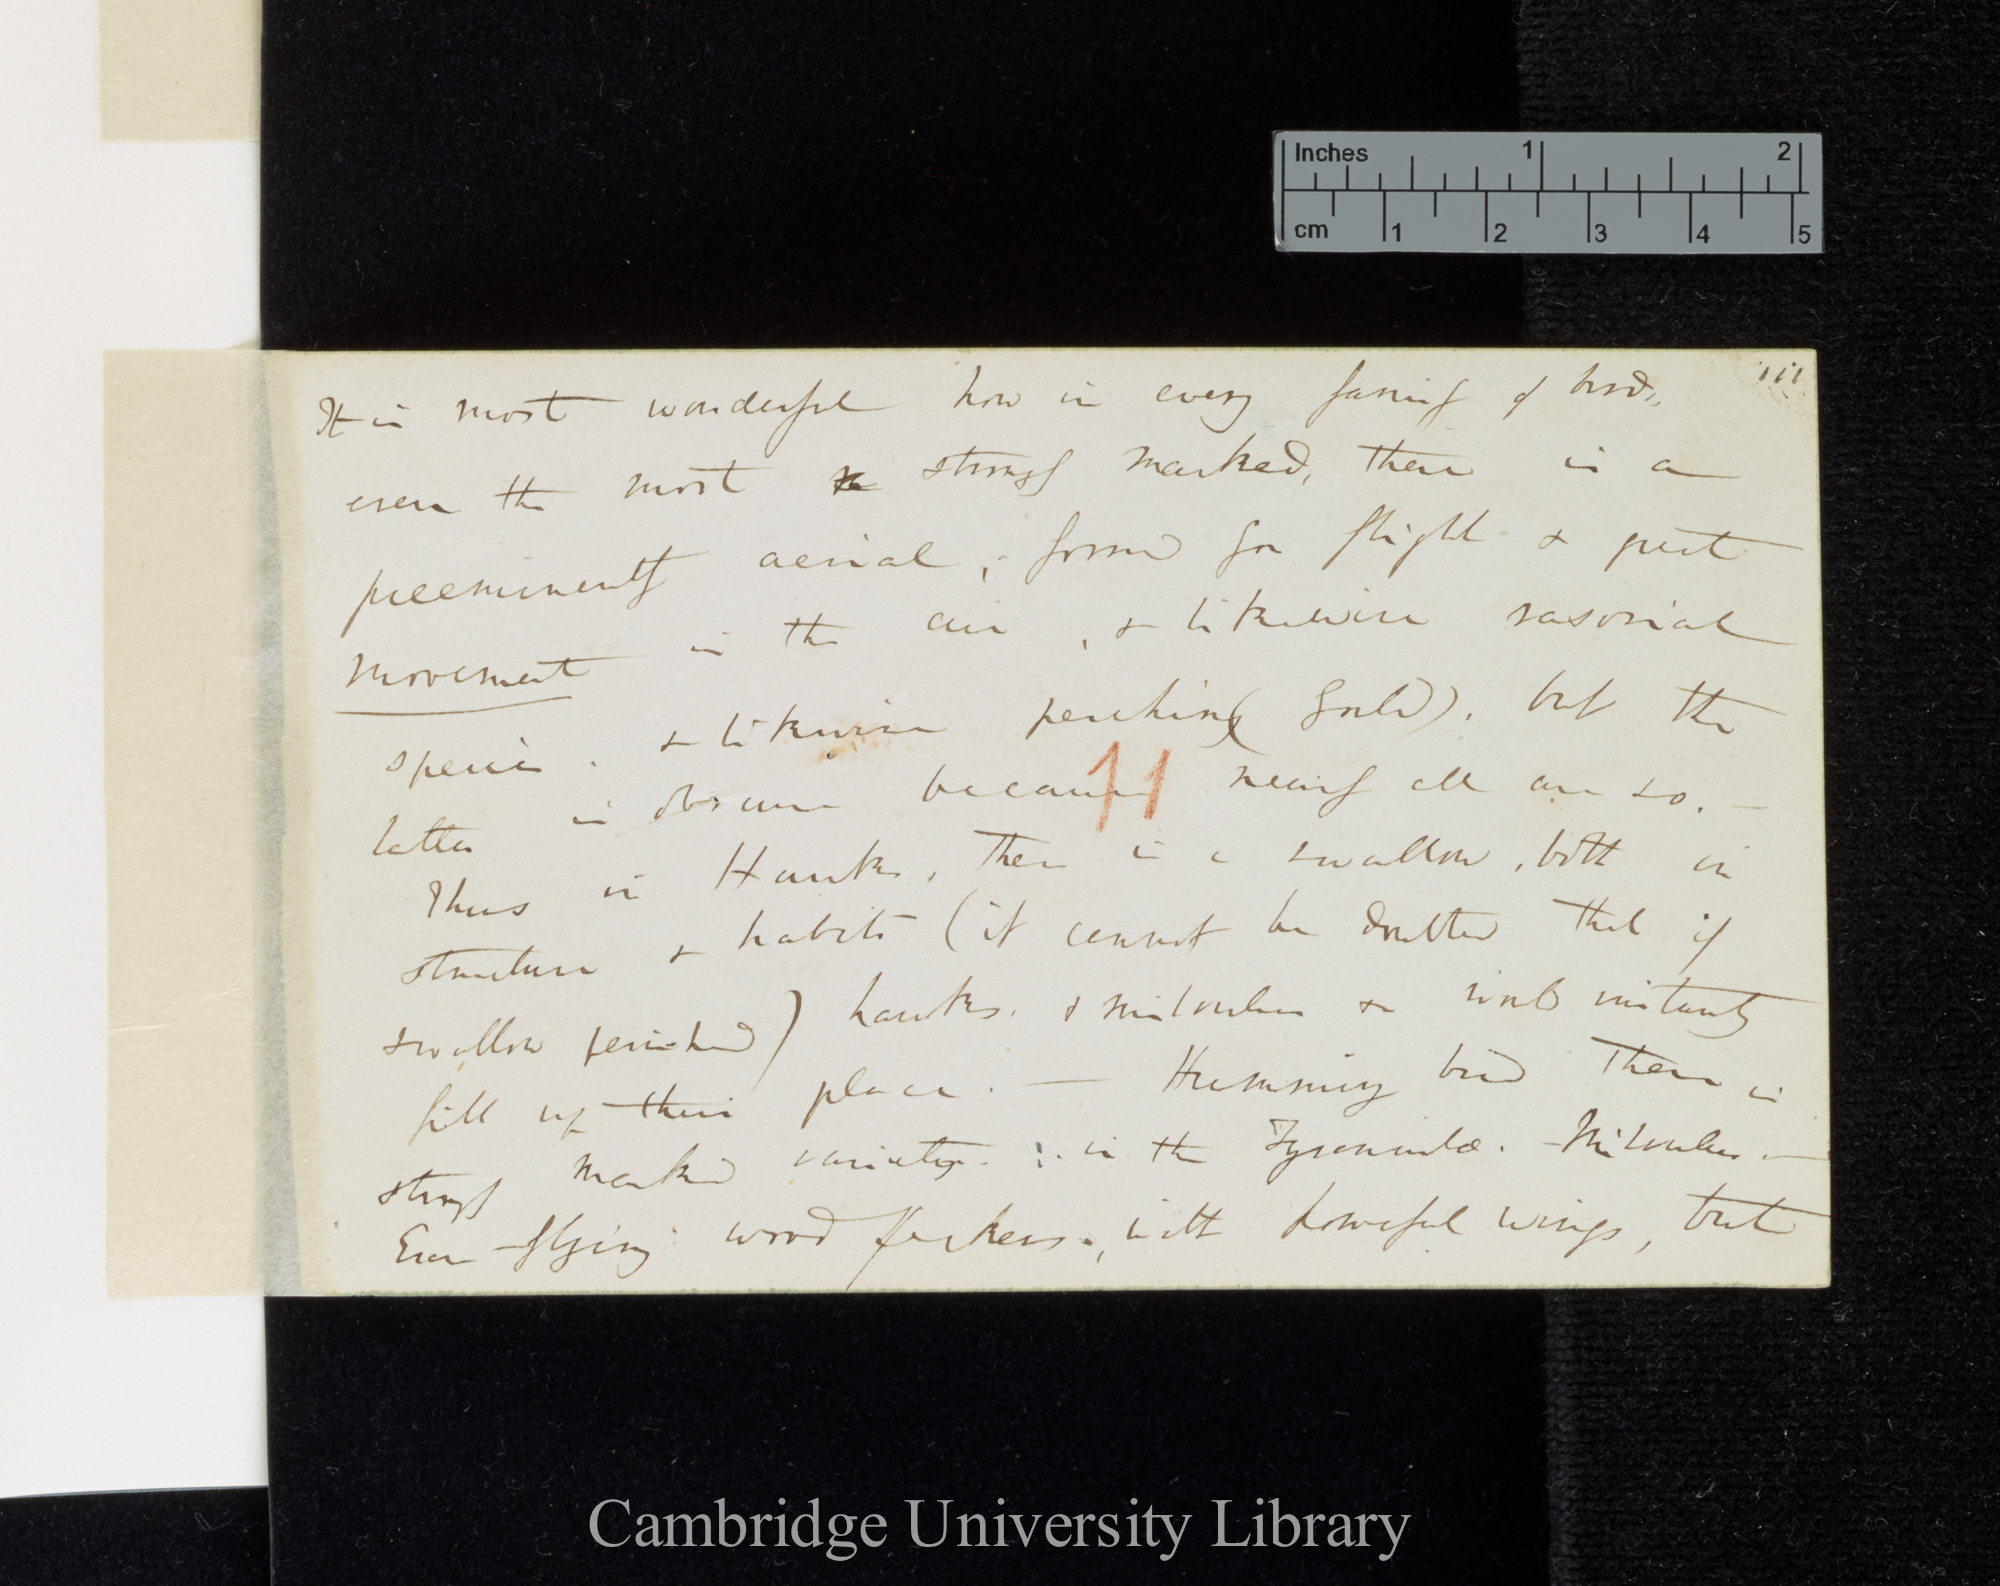 Inches 1 2
cm 1 2 3 4 5
111
It is most wonderful how in every family of birds,
even the most strongly marked, there is a
preeminently aerial, formed for flight & great
movement in the air, & likewise rasorial
species. & likewise perching (Gould), but the
latter is obscure because nearly all are so. —
11
Thus in Hawks, there is a swallow, both in
structure & habits (it cannot be doubted that if
swallow perished) hawks. & Milvulus & would instantly
fill up their place. — Humming bird There is
strongly marked variety. in the Tyrannidæ. — Milvulus. —
Even flying wood peckers, with powerful wings, but
Cambridge University Library